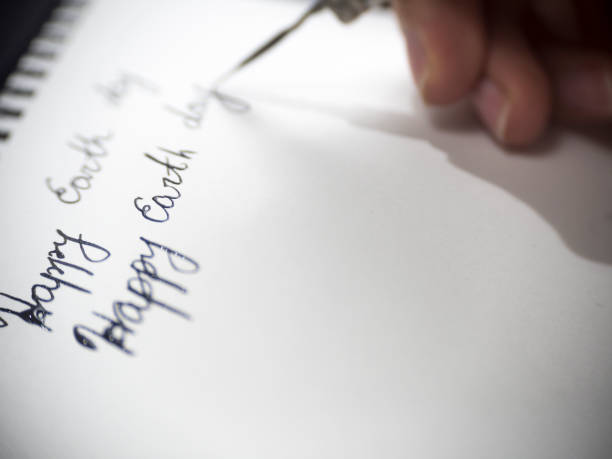 Happy Earth day
Happy Earth day